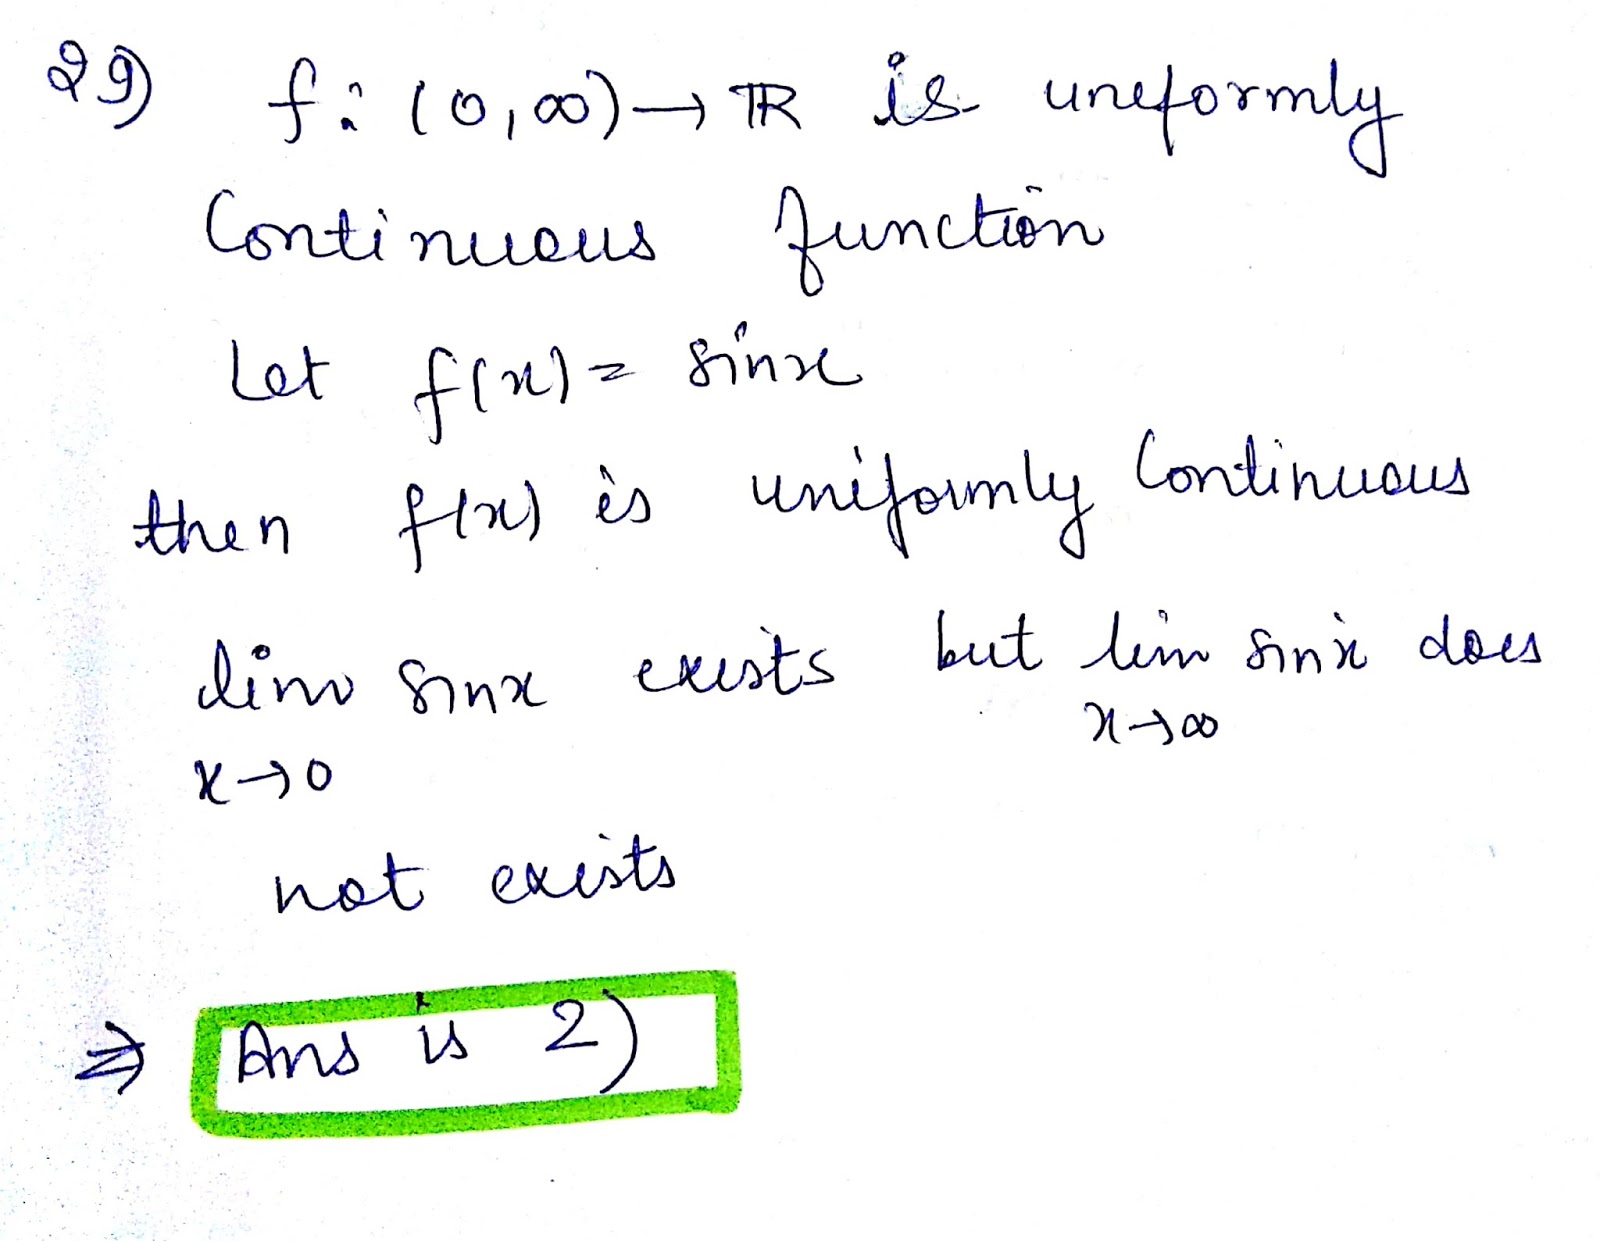 29) f: (0,∞)→ℝ is uniformly
Continuous function
Let f(x) = sinx
then f(x) is uniformly Continuous
lim sinx exists but lim sinx does
x→0 x→∞
not exists
⇒ Ans is 2)